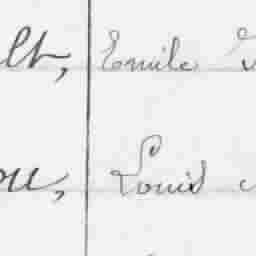 lt, Emile
ou, Louis